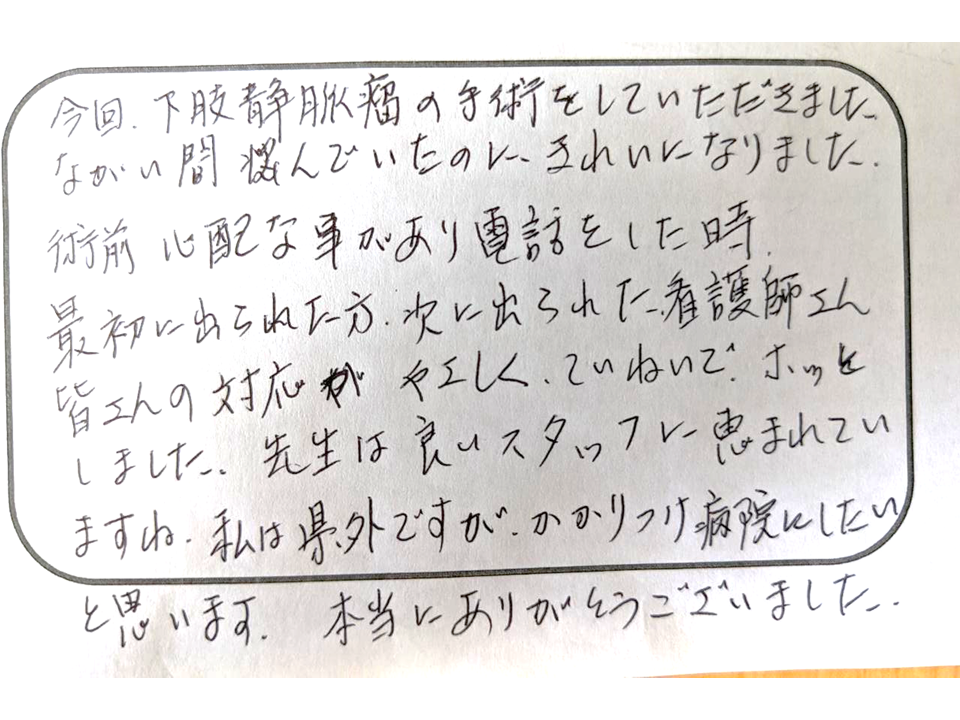 今回、下肢静脈瘤の手術をしていただきました。
ながい間悩んでいたのに、きれいになりました。
術前 心配な事があり電話をした時、
最初に出られた方、次に出られた、看護師さん
皆さんの対応が やさしく、ていねいで、ホッと
しました。先生は良いスタッフに恵まれてい
ますね。私は県外ですが、かかりつけ病院にしたい
と思います。 本当にありがとうございました。